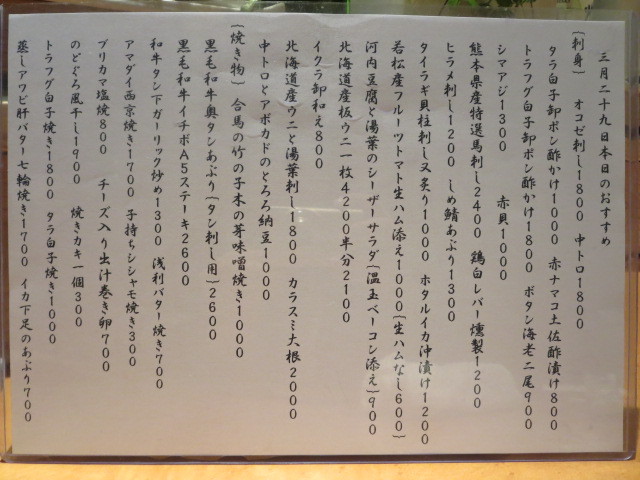 三月二十九日本日のおすすめ
(刺身)　オコゼ刺し1800　中トロ1800
タラ白子卸ポン酢かけ1000　赤ナマコ土佐酢漬け800
トラフグ白子卸ポン酢かけ1800　ボタン海老二尾900
シマアジ1300　赤貝1000
熊本県産特選馬刺し2400　鶏白レバー燻製1200
ヒラメ刺し1200　しめ鯖あぶり1300
タイラギ貝柱刺し又炙り1000　ホタルイカ沖漬け1200
若松産フルーツトマト生ハム添え1000(生ハムなし600)
河内豆腐と湯葉のシーザーサラダ(温玉ベーコン添え)900
北海道産板ウニ一枚4200半分2100
イクラ卸和え800
北海道産ウニと湯葉刺し1800　カラスミ大根2000
中トロとアボカドのとろろ納豆1000
(焼き物)　合馬の竹の子木の芽味噌焼き1000
黒毛和牛奥タンあぶり(タン刺し用)2600
黒毛和牛イチボA5ステーキ2600
和牛タン下ガーリック炒め1300　浅利バター焼き700
アマダイ西京焼き1700　子持ちシシャモ焼き300
ブリカマ塩焼800　チーズ入り出汁巻き卵700
のどぐろ風干し1900　焼きカキ一個300
トラフグ白子焼き1800　タラ白子焼き1000
蒸しアワビ肝バター七輪焼き1700　イカ下足のあぶり700